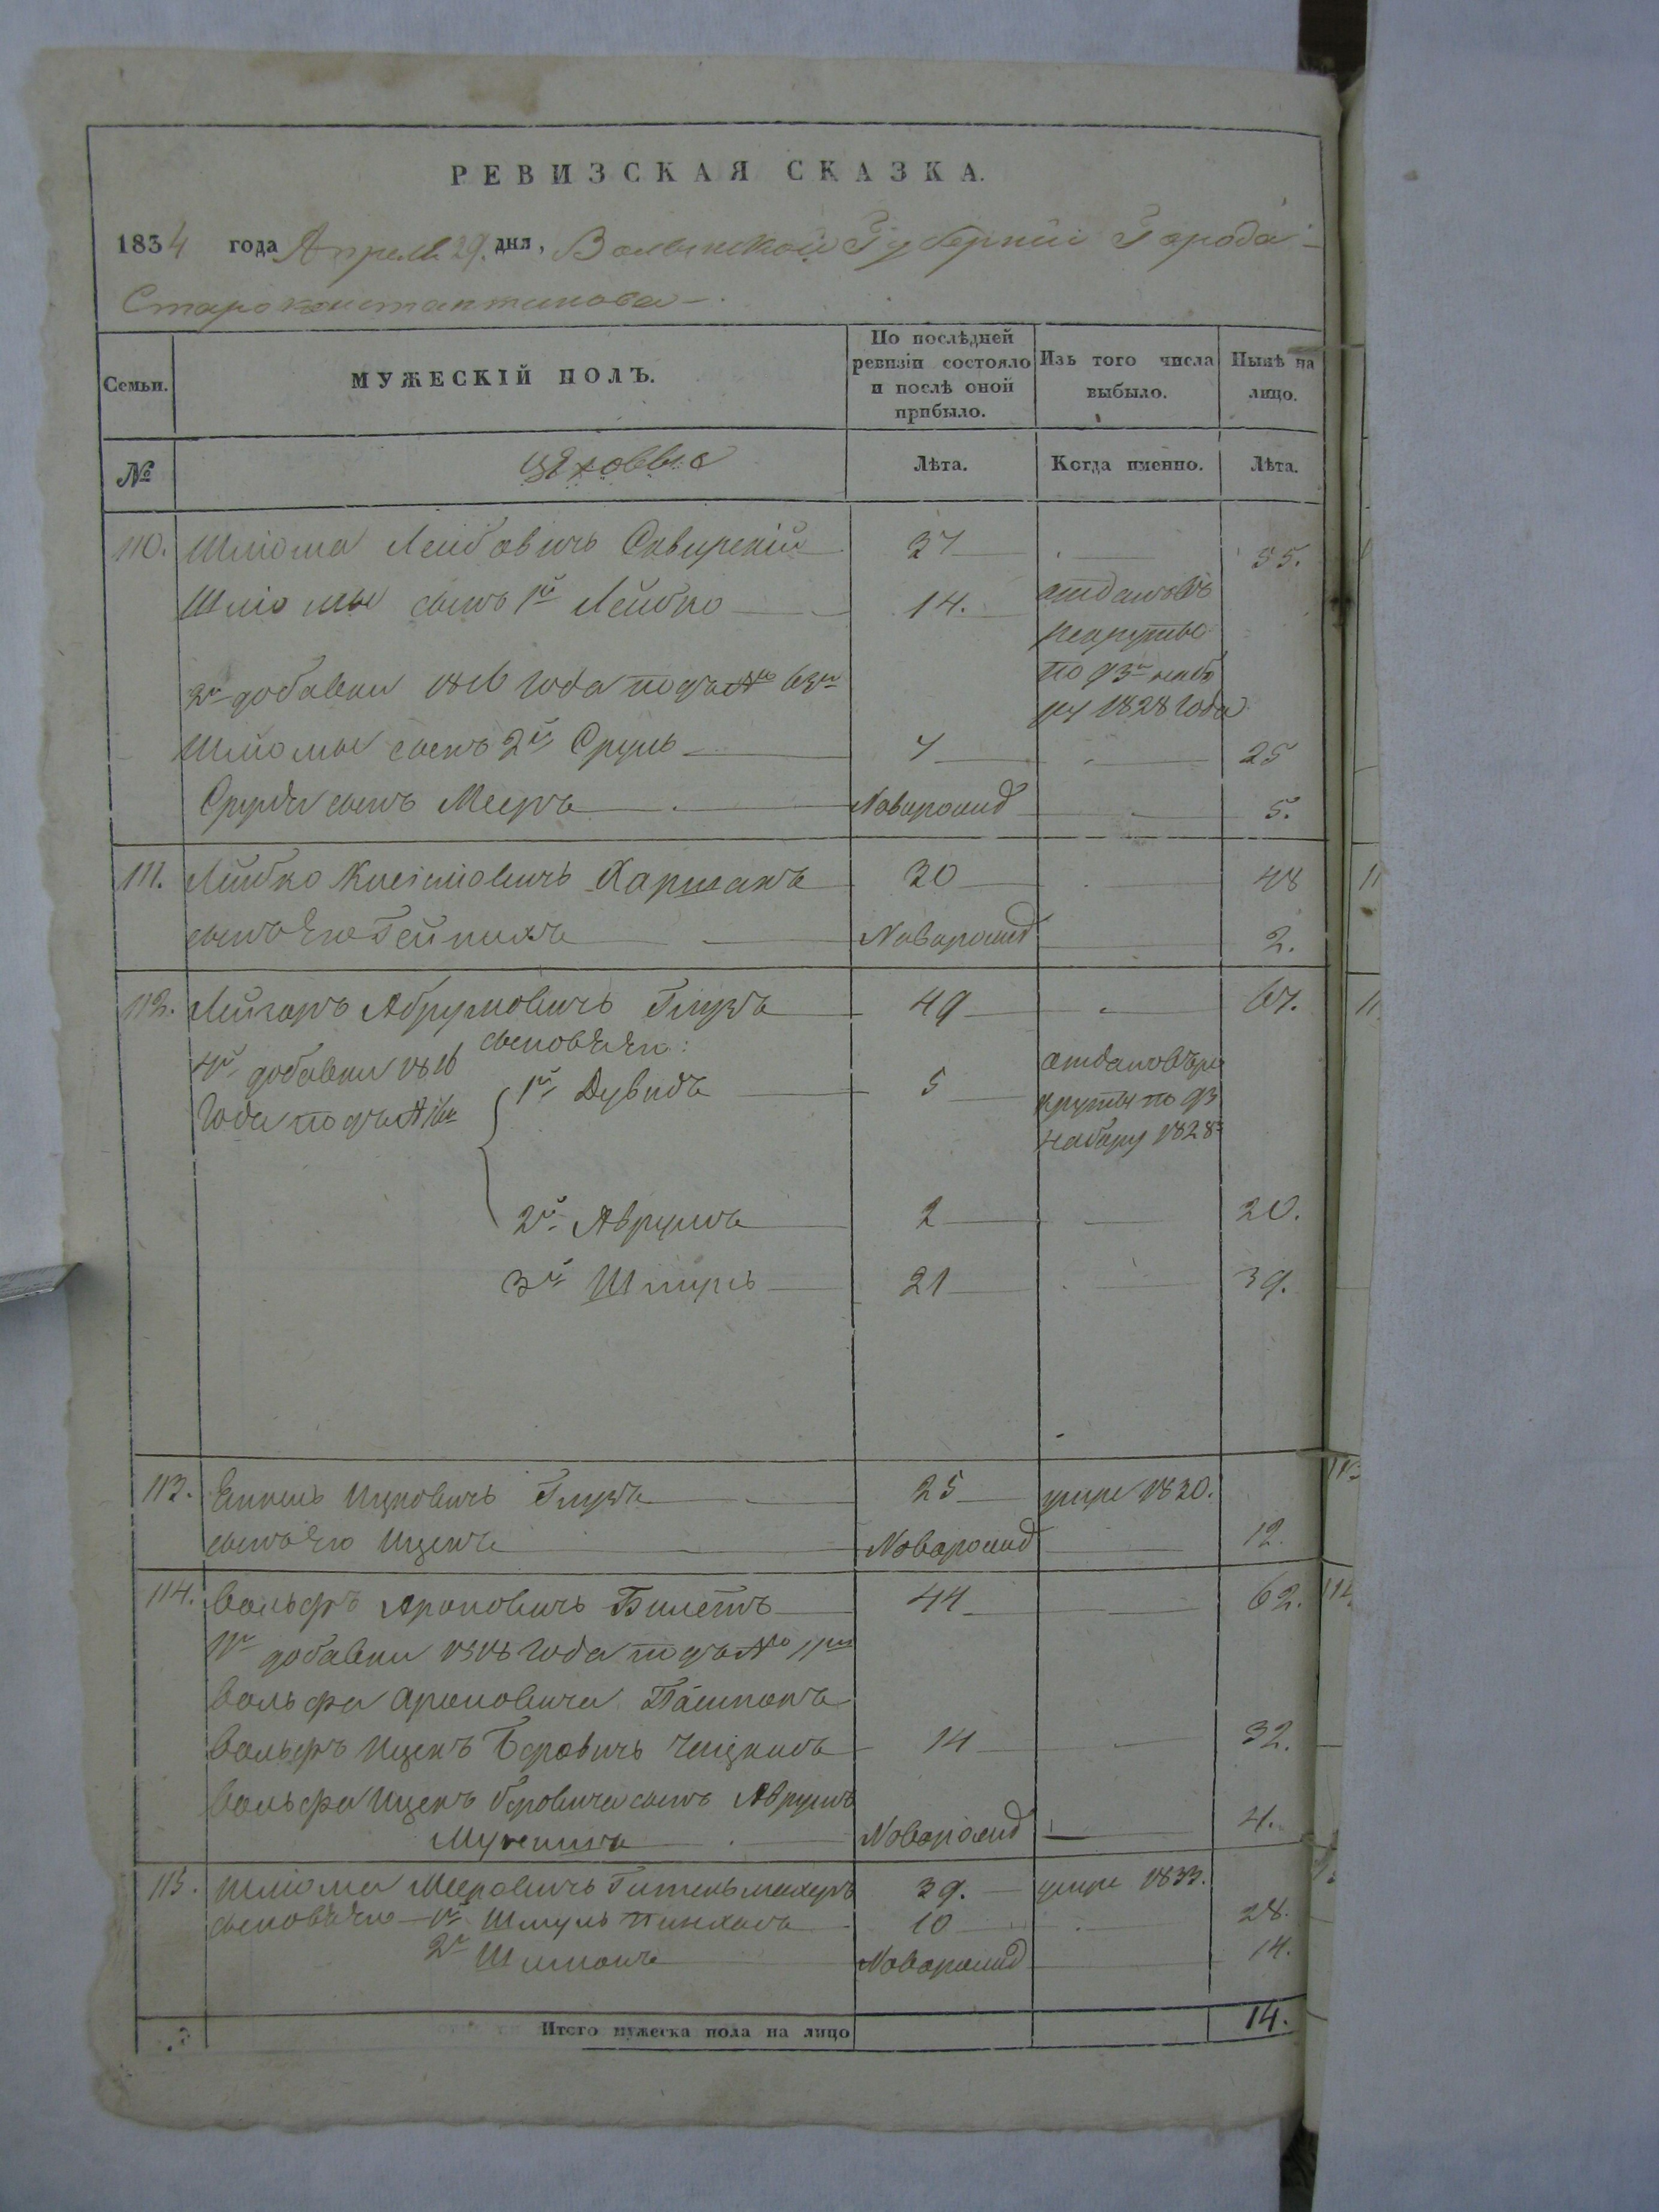 РЕВИЗСКАЯ СКАЗКА.
1834 года Апреля 29. дня, Волынской Губернии Города
Староконстантинова
Семьи.
МУЖЕСКІЙ ПОЛЪ.
По послѣдней ревизіи состояло и послѣ оной прибыло.
Изъ того числа выбыло.
Нынѣ на лицо.
№
цѣховые
Лѣта.
Когда именно.
Лѣта.
110. Шліома Лейбовичъ Сквирскій 37 55.
Шліомы сынъ 1й Лейбко 14. отданъ въ
рекруты
2й добавки 1816 года подъ № 63м по 93м набо
ру 1828 года
Шліомы сынъ 2й Сруль 7 25
Сруля сынъ Мееръ Новорожд 5.
111. Лейбко Харшакъ 30 48
сынъ его Новорожд 2.
112. Лейзоръ Абрумовичъ Глузъ 49 67.
сыновья его:
4й добавки 1816
года подъ №
1й Дувидъ 5 отданъ въ ре
круты по 93
набору 1828
2й Аврумъ 2 20.
3й Шмуль 21 39.
113. Ицковичъ Глузъ 25 умре 1830.
сынъ его Ицекъ Новорожд 12.
114. Вольфъ Ароновичъ Билетъ 44 62.
добавки 1818 года подъ №
Вольфа Ароновича
Вольфъ Ицекъ Беровичъ 14 32.
Вольфа Ицекъ Беровича сынъ Аврумъ
Новорожд 4.
115. Шліома Мееровичъ Гительмахеръ 39. умре 1833.
сыновья его 1й Шмуль Пинхасъ 10 28.
2й Шимонъ Новорожд 14.
Итого мужеска пола на лицо 14.